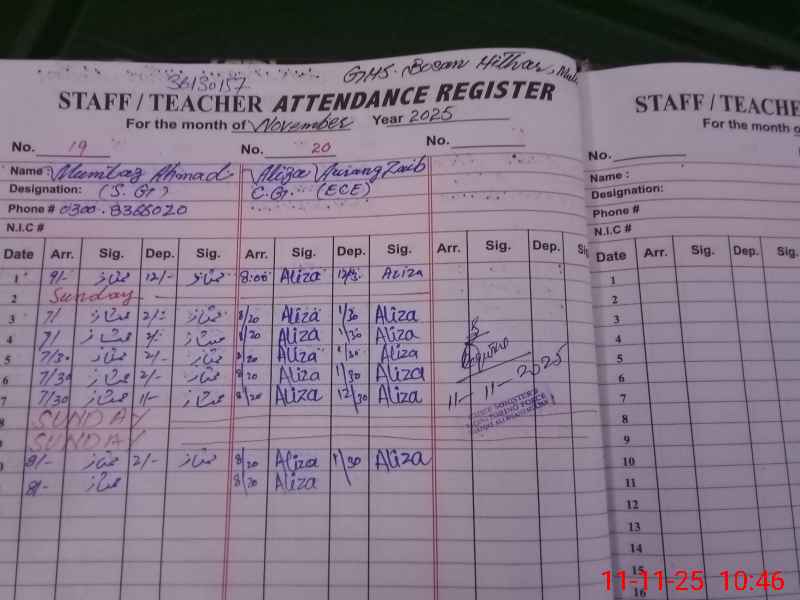 36130157 GHS. Bosan Hithar, Mul
STAFF / TEACHER ATTENDANCE REGISTER
For the month of November Year 2025
No. 19 No. 20 No.
Name : Mumtaz Ahmad Aliza Aurang Zaib
Designation: (S. Gr) C.Gr. (ECE)
Phone # 0300-8366020
N.I.C #
Date Arr. Sig. Dep. Sig. Arr. Sig. Dep. Sig. Arr. Sig. Dep. Sig
1 9/- ممتاز 12/- ممتاز 8:00 Aliza Aliza
2 Sunday
3 7/ ممتاز 2/- ممتاز 8/20 Aliza 1/30 Aliza
4 7/ ممتاز 2/- ممتاز 8/20 Aliza 1/30 Aliza
5 7/30 ممتاز 2/- ممتاز 8/20 Aliza 1/30 Aliza
6 7/30 ممتاز 2/- ممتاز 8/20 Aliza 1/30 Aliza
7 7/30 ممتاز 11/- ممتاز 8/20 Aliza 12/30 Aliza
8 SUNDAY
9 SUNDAY
8/- ممتاز 2/- ممتاز 8/20 Aliza 1/30 Aliza
8/- ممتاز 8/20 Aliza
11-11-2025
CHIEF MINISTER'S
MONITORING FORCE
STAFF / TEACHE
For the month o
No.
Name :
Designation:
Phone #
N.I.C #
Date Arr. Sig. Dep. Sig.
1
2
3
4
5
6
7
8
9
10
11
12
13
14
15
16
11-11-25 10:46